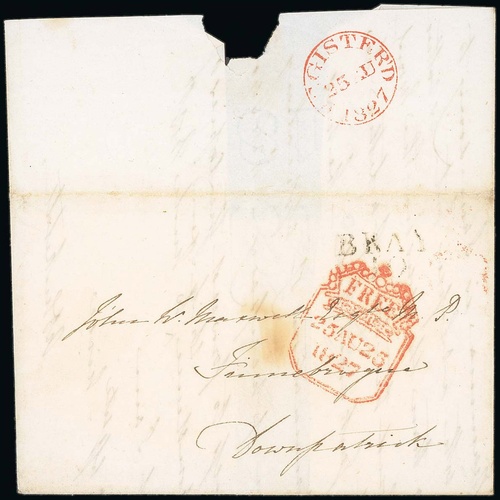 GISTERD
25 U
1827
BRAY
FREE
25 AU 25
1827
John W. Maxwell Esqre M.P.
Finnebrogue
Downpatrick